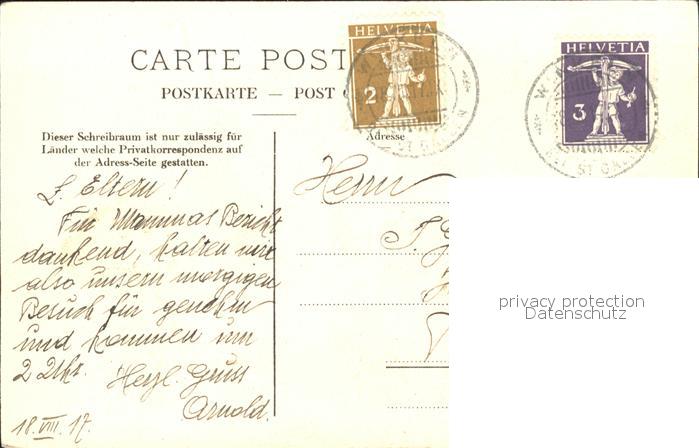 CARTE POST
POSTKARTE — POST C
HELVETIA
2
HELVETIA
3
ST GALLEN
ST GALLEN
Dieser Schreibraum ist nur zulässig für
Länder welche Privatkorrespondenz auf
der Adress-Seite gestatten.
Adresse
L. Eltern!
Für Mammas Bericht
dankend, halten wir
also unsern morgigen
Besuch für genehm
und kommen um
2 Uhr. Herzl. Gruss
Arnold.
18. VIII. 17.
Herrn
privacy protection
Datenschutz